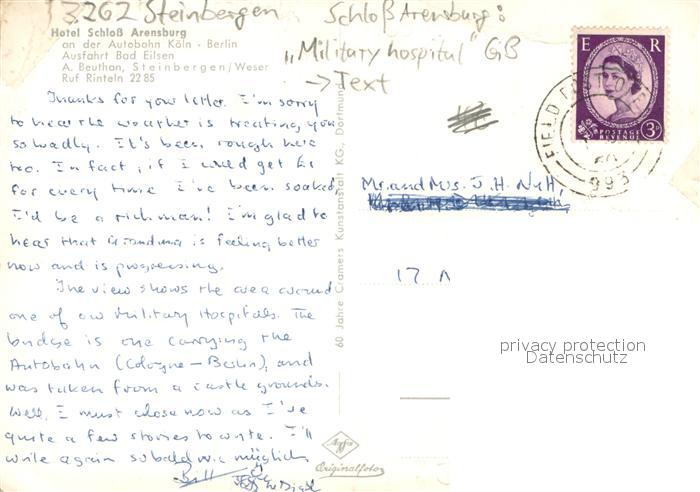 3262 Steinbergen
Schloß Arensburg:
„Military hospital" GB
→ Text
Hotel Schloß Arensburg
an der Autobahn Köln - Berlin
Ausfahrt Bad Eilsen
A. Beuthan, Steinbergen/Weser
Ruf Rinteln 22 85
Thanks for your letter. I'm sorry
to hear the weather is treating you
so badly. It's been rough here
too. In fact, if I could get
for every time I've been soaked,
I'd be a rich man! I'm glad to
hear that Grandma is feeling better
now and is progressing.
The view shows the area around
one of our Military Hospitals. The
bridge is one carrying the
Autobahn (Cologne – Berlin), and
was taken from a castle grounds.
Well, I must close now as I've
quite a few stories to write. I'll
write again sobald wie möglich.
Bill
60 Jahre Cramers Kunstanstalt KG, Dortmund
E R
POSTAGE
REVENUE
3D
FIELD POST OFFICE
60
993
Mr. and Mrs. J. H. Nutt,
17 A
privacy protection
Datenschutz
Agfa
Originalfoto